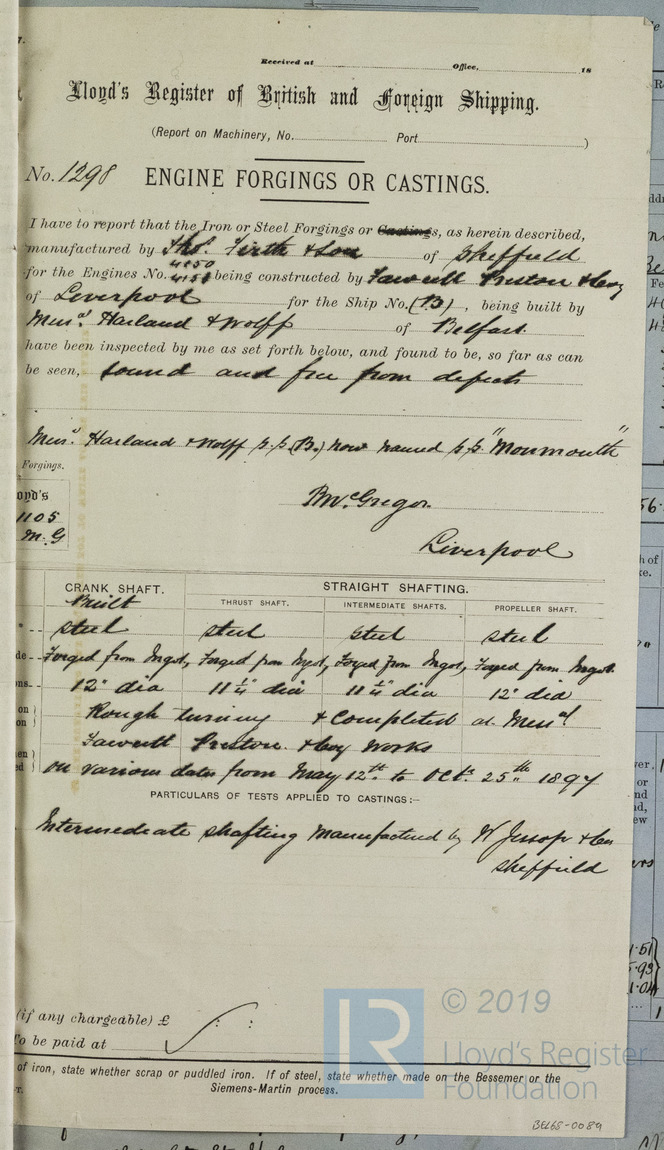 Received at Office, 18
Lloyd's Register of British and Foreign Shipping.
(Report on Machinery, No. Port )
No. 1298 ENGINE FORGINGS OR CASTINGS.
I have to report that the Iron or Steel Forgings or Castings, as herein described,
manufactured by Thos. Firth & Son of Sheffield
4150
for the Engines No. 4151 being constructed by Fawcett Preston & Coy
of Liverpool for the Ship No. (B), being built by
Messrs Harland & Wolff of Belfast
have been inspected by me as set forth below, and found to be, so far as can
be seen, sound and free from defects
Messrs Harland & Wolff s.s (B.) now named s.s. "Monmouth"
Forgings.
oyd's
1105
M.G
McGregor
Liverpool
CRANK SHAFT. STRAIGHT SHAFTING.
THRUST SHAFT. INTERMEDIATE SHAFTS. PROPELLER SHAFT.
Built
steel steel steel steel
de Forged from Ingot, Forged from Ingot, Forged from Ingot, Forged from Ingot.
ns 12" dia 11 1/4" dia 11 1/4" dia 12" dia
on Rough turning & Completed at Messrs
on Fawcett Preston & Coy Works
en
ed on various dates from May 12th to Oct. 25th 1897
PARTICULARS OF TESTS APPLIED TO CASTINGS:—
Intermediate shafting manufactured by W Jessop & Son
Sheffield
(if any chargeable) £ : :
To be paid at
of iron, state whether scrap or puddled iron. If of steel, state whether made on the Bessemer or the
Siemens-Martin process.
LR
© 2019
Lloyd's Register
Foundation
BEL68-0089